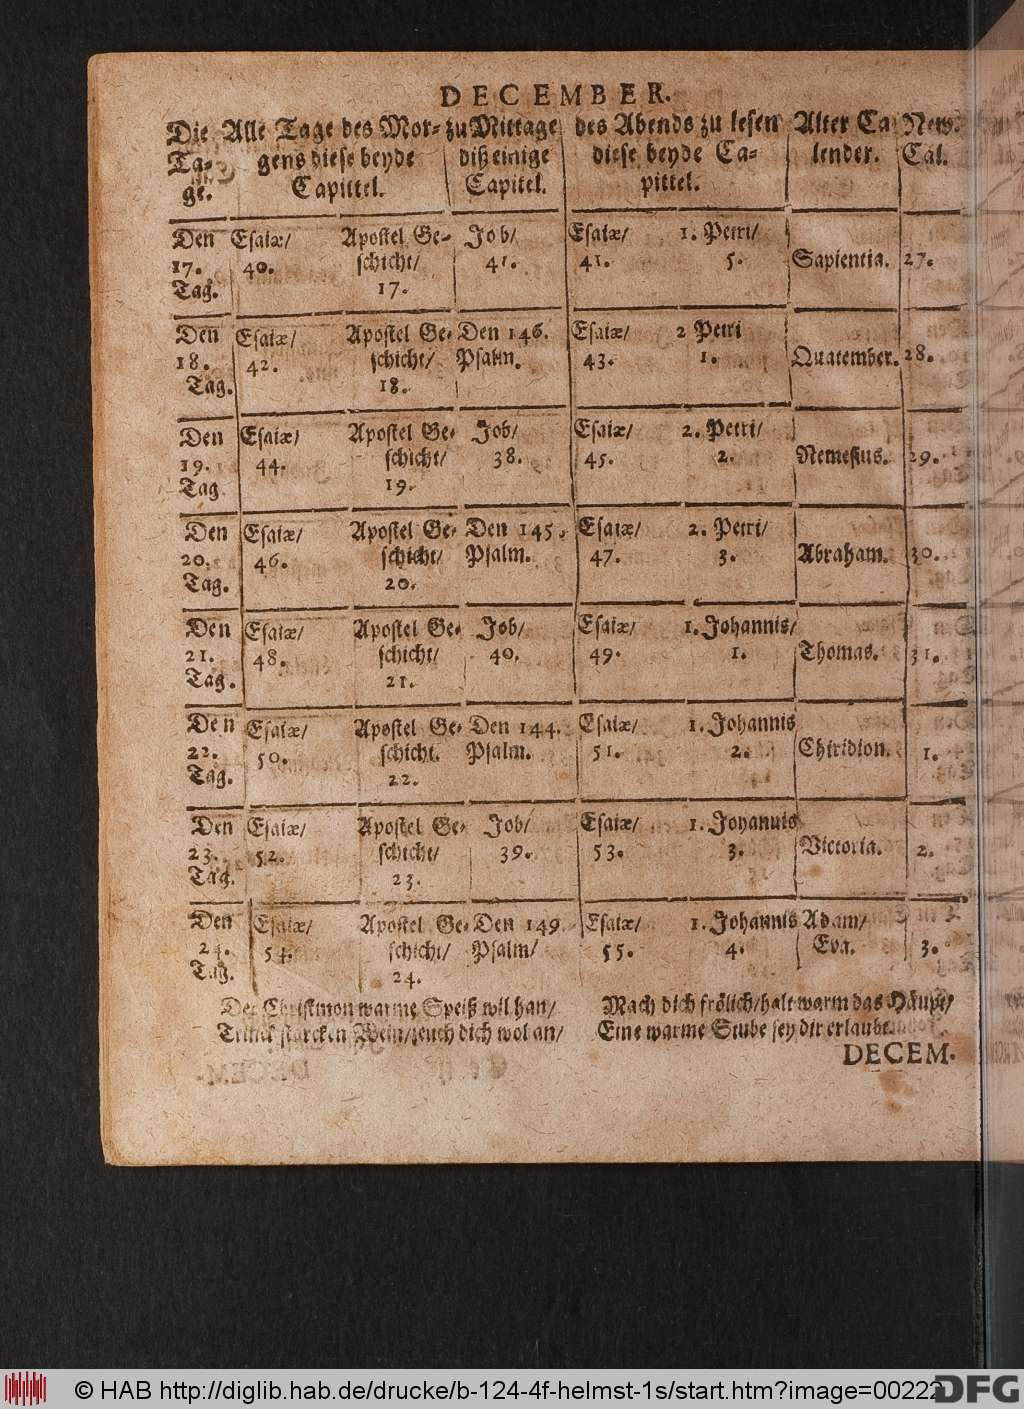 DECEMBER.
Die Alle Tage des Mor- zu Mittage des Abends zu lesen Alter Ca New.
Ta- gens diese beyde diß einige diese beyde Ca- lender. Cal.
ge. Capittel. Capitel. pittel.
Den Esaiæ/ Apostel Ge- Job/ Esaiæ/ 1. Petri/
17. 40. schicht/ 41. 41. 5. Sapientia. 27.
Tag. 17.
Den Esaiæ/ Apostel Ge- Den 146. Esaiæ/ 2 Petri
18. 42. schicht/ Psalm. 43. 1. Quatember. 28.
Tag. 18.
Den Esaiæ/ Apostel Ge- Job/ Esaiæ/ 2. Petri/
19. 44. schicht/ 38. 45. 2. Nemesius. 29.
Tag 19.
Den Esaiæ/ Apostel Ge- Den 145. Esaiæ/ 2. Petri/
20. 46. schicht/ Psalm. 47. 3. Abraham. 30.
Tag. 20.
Den Esaiæ/ Apostel Ge- Job/ Esaiæ/ 1. Johannis/
21. 48. schicht/ 40. 49. 1. Thomas. 31.
Tag. 21.
Den Esaiæ/ Apostel Ge- Den 144. Esaiæ/ 1. Johannis
22. 50. schicht. Psalm. 51. 2. Chiridion. 1.
Tag. 22.
Den Esaiæ/ Apostel Ge- Job/ Esaiæ/ 1. Joyanuis
23. 52. schicht/ 39. 53. 3. Victoria. 2.
Tag. 23.
Den Esaiæ/ Apostel Ge- Den 149. Esaiæ/ 1. Johannis Adam/
24. 54. schicht/ Psalm/ 55. 4. Eva. 3.
Tag. 24.
Der Christmon warme Speiß wil han/ Mach dich frölich/halt warm das Häupt/
Trinck starcken Wein/zeuch dich wol an/ Eine warme Stube sey dir erlaubt.
DECEM.
© HAB http://diglib.hab.de/drucke/b-124-4f-helmst-1s/start.htm?image=00222
DFG